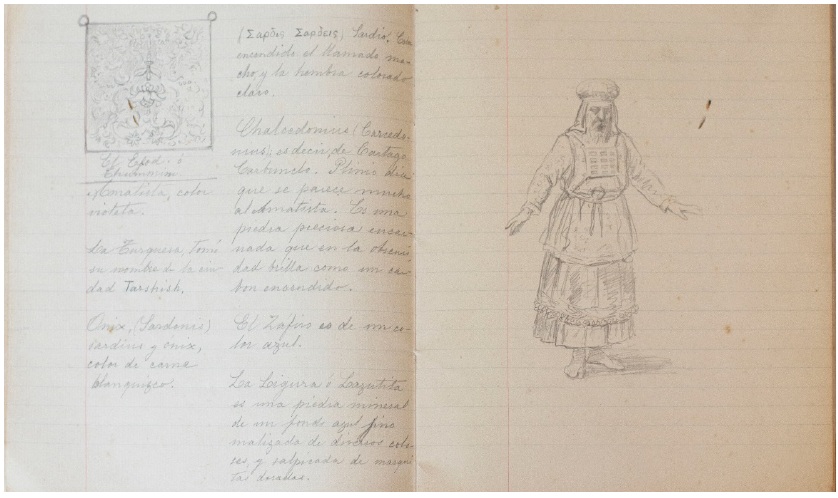 El Efod. ó
Amatista, color
violeta.
La Turquesa, tomó
su nombre de la ciu-
dad Tarshish.
Onix, (Sardonis)
sardius y onix,
color de carne
blanquizco.
(Σαρδις Σαρδεις, Sardio.
encendido el llamado ma-
cho, y la hembra colorado
claro.
Chalcedonius (Carcedo-
nius, es decir, de Cartago,
Carbunclo. Plinio dice
que se parece mucho
al Amatista. Es una
piedra preciosa encar-
nada que en la obscuri-
dad brilla como un car-
bon encendido.
El Zafiro es de un co-
lor azul.
La Ligura ó Lazulita
es una piedra mineral
de un fondo azul fino
matizada de diversos colo-
res, y salpicada de
doradas.